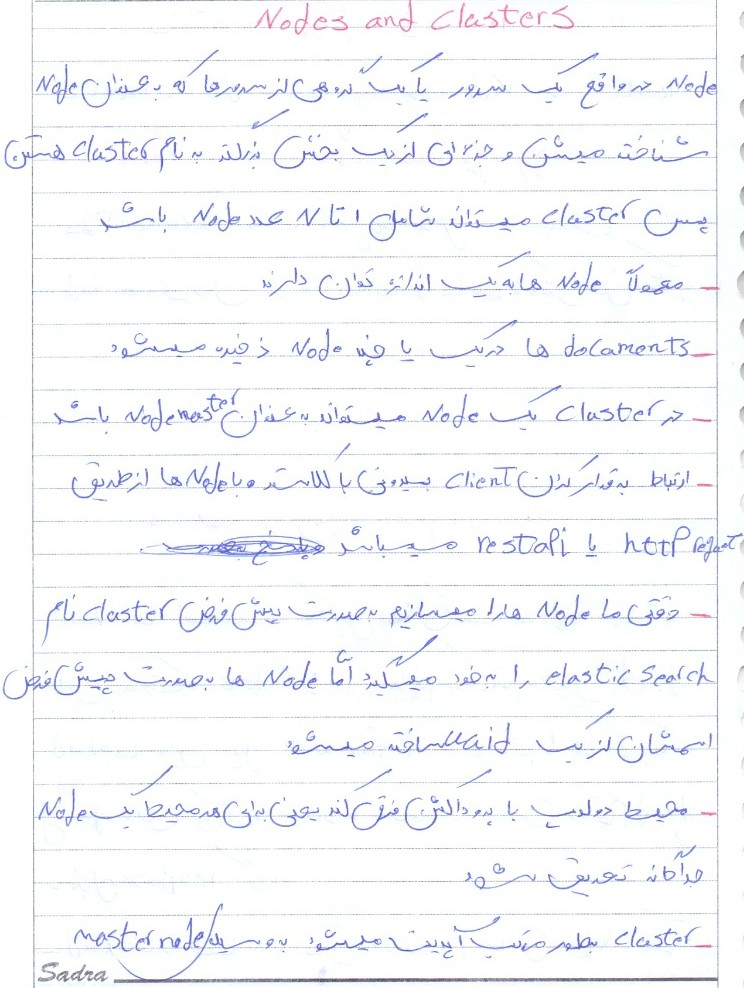 Nodes and clasters
Node در واقع یک سرور یا یک گروهی از سرورها که به عنوان Node
شناخته میشن و جزءای از یک بخش بزرگتر به نام claster هستن
پس claster میتواند شامل 1 تا N عدد Node باشد
– معمولاً Node ها به یک اندازه توان دارند
– documents ها در یک یا چند Node ذخیره میشود
– در claster یک Node میتواند به عنوان Node master باشد
– ارتباط برقرار کردن client بیرونی با کلاستر و با Node ها از طریق
http request یا restapi میباشد
– وقتی ما Node ها را میسازیم بصورت پیش فرض claster نام
elastic search را به خود میگیرد امّا Node ها بصورت پیش فرض
اسمشان از یک uuid ساخته میشود
– محیط دولوپ با پروداکشن فرق کند یعنی برای هر محیط یک Node
جداگانه تعریف شود
– claster بطور مرتب آپدیت میشود به وسیله master node
Sadra